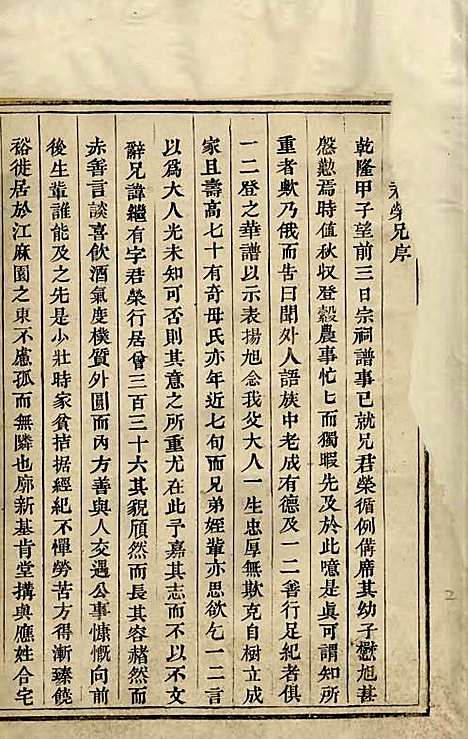 榮兄序
乾隆甲子望前三日宗祠譜事已就兄君榮循例偹席其幼子懋旭甚
慇懃焉時值秋収登穀農事忙匕而獨暇先及於此噫是眞可謂知所
重者歟乃俄而告曰聞外人語族中老成有德及一二善行足紀者俱
一二登之華譜以示表揚旭念我父大人一生忠厚無欺克自樹立成
家且壽高七十有奇母氏亦年近七旬而兄弟姪輩亦思欲乞一二言
以爲大人光未知可否則其意之所重尤在此予嘉其志而以不文
辭兄諱繼有字君榮行居曾三百三十六其貌頎然而長其容赭然而
赤善言談喜飲酒氣度樸質外圓而内方善與人交遇公事慷慨向前
後生輩誰能及之先是少壯時家貧拮据經紀不憚勞苦方得漸臻饒
裕徙居於江麻園之東不慮孤而無隣也廓新基肯堂搆與應姓合宅